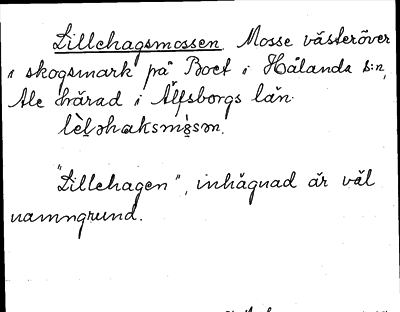 Lillehagsmossen. Mosse västeröver
i skogsmark på Boet i Hålanda s:n,
Ale härad i Älfsborgs län.
lèləhaksmòsən.
"Lillehagen", inhägnad är väl
namngrund.